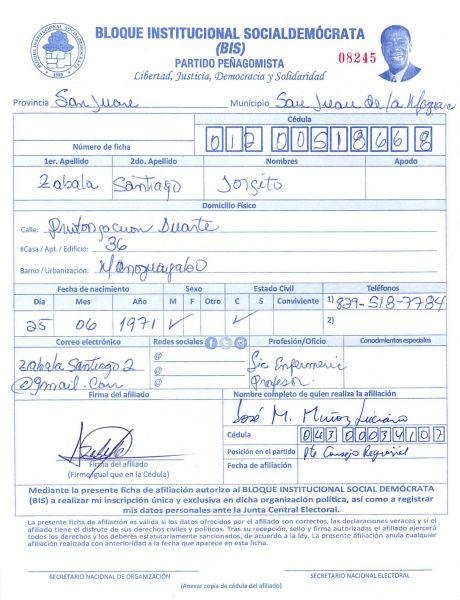 BLOQUE INSTITUCIONAL SOCIALDEMÓCRATA
(BIS)
PARTIDO PEÑAGOMISTA
Libertad, Justicia, Democracia y Solidaridad
08245
Provincia San Juan Municipio San Juan de la Maguana
Cédula
Número de ficha 012 0051866 8
1er. Apellido 2do. Apellido Nombres Apodo
Zabala Santiago Jorgito
Domicilio Físico
Calle: Prolongacion Duarte
#Casa / Apt. / Edificio: 36
Barrio / Urbanización: Manoguayabo
Fecha de nacimiento Sexo Estado Civil Teléfonos
Día Mes Año M F Otro C S Conviviente 1) 829-518-7784
25 06 1971 ✓ ✓ 2)
Correo electrónico Redes sociales Profesión/Oficio Conocimientos especiales
zabala Santiago 2 @ Lic Enfermeria
@gmail.com @ Profesor
@
Firma del afiliado Nombre completo de quien realiza la afiliación
José M. Muñoz Luciano
Cédula 043 0003410 7
Posición en el partido Pte Consejo Regional
Firma del afiliado Fecha de afiliación
(Firme igual que en la Cédula)
Mediante la presente ficha de afiliación autorizo al BLOQUE INSTITUCIONAL SOCIAL DEMÓCRATA
(BIS) a realizar mi inscripción única y exclusiva en dicha organización política, así como a registrar
mis datos personales ante la Junta Central Electoral.
La presente ficha de afiliación es válida si los datos ofrecidos por el afiliado son correctos, las declaraciones veraces y si el
afiliado tiene el disfrute de sus derechos civiles y políticos. Tras su recepción, sello y firma autorizados el afiliado ejercerá
todos los derechos y los deberes estatutariamente sancionados, de acuerdo a la ley. La presente afiliación anula cualquier
afiliación realizada con anterioridad a la fecha que aparece en esta ficha.
SECRETARIO NACIONAL DE ORGANIZACIÓN SECRETARIO NACIONAL ELECTORAL
(Anexar copia de cédula del afiliado)